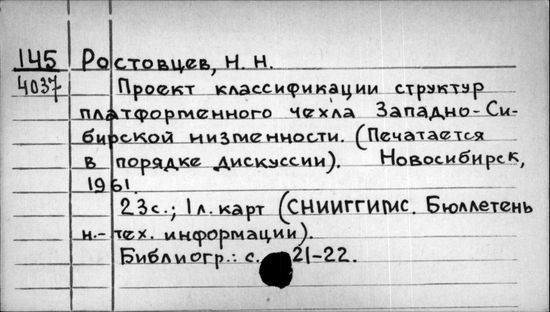 145 Ростовцев, Н. Н.
4037 Проект классификации структур
платформенного чехла Западно-Си-
бирской низменности. (Печатается
в порядке дискуссии). Новосибирск,
1961.
23с.; 1л. карт (СНИИГГИМС. Бюллетень
н.-тех. информации).
Библиогр.: с. 21-22.